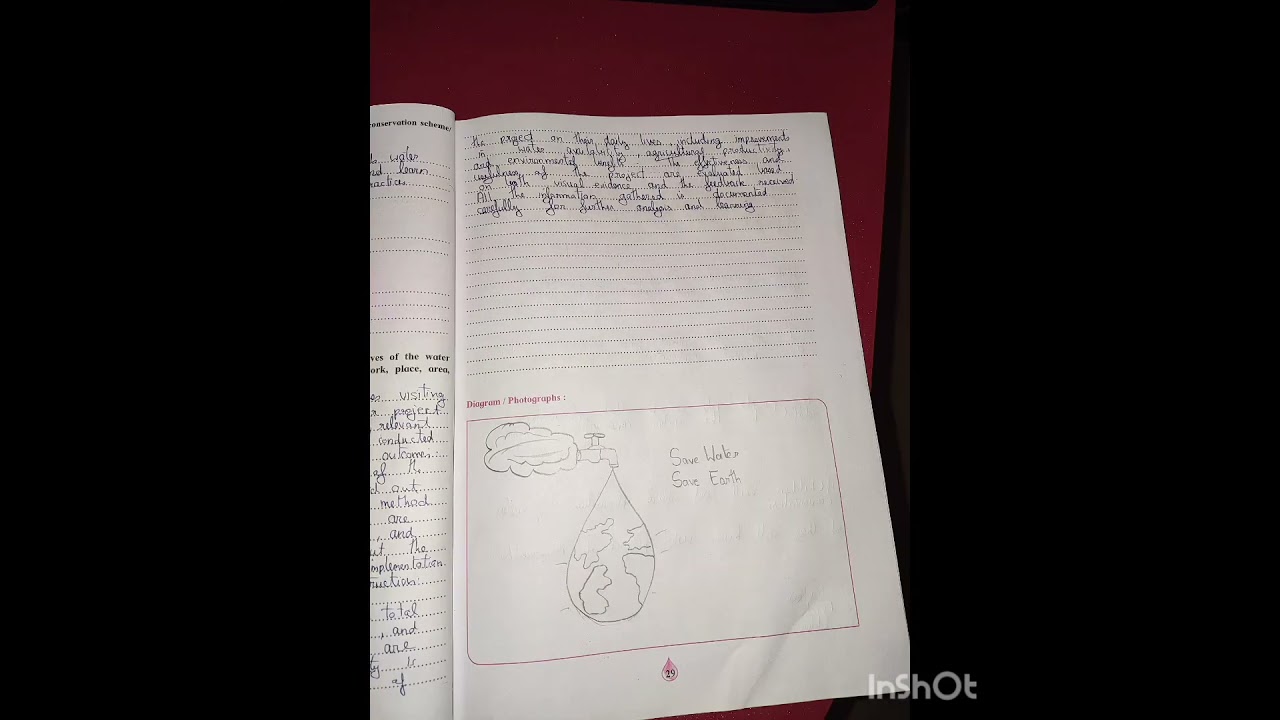 conservation scheme/
water
and learn
practice
ves of the water
ork, place, area,
visiting
project
relevant
conducted
outcomes.
of the
out
method
are
, and
out the
implementation
total
, and
are
of
the project on their daily lives, including improvements
in water availability, agricultural productivity,
and environmental The effectiveness and
usefulness of the project are evaluated based
on both visual evidence and the feedback received
All the information gathered is documented
carefully for further analysis and learning
Diagram / Photographs :
Save Water
Save Earth
29
InShOt